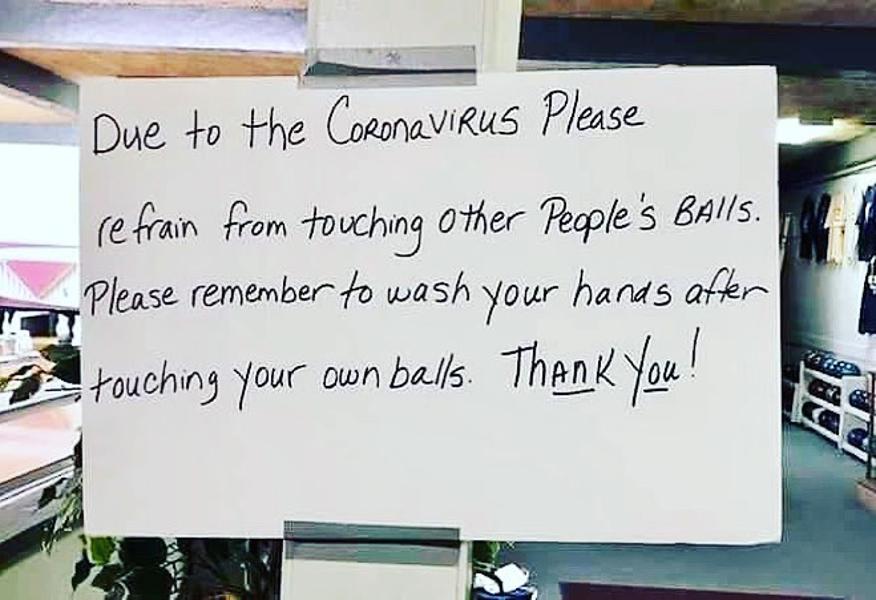 Due to the CORONAVIRUS Please
refrain from touching other People's BAlls.
Please remember to wash your hands after
touching your own balls. Thank You!